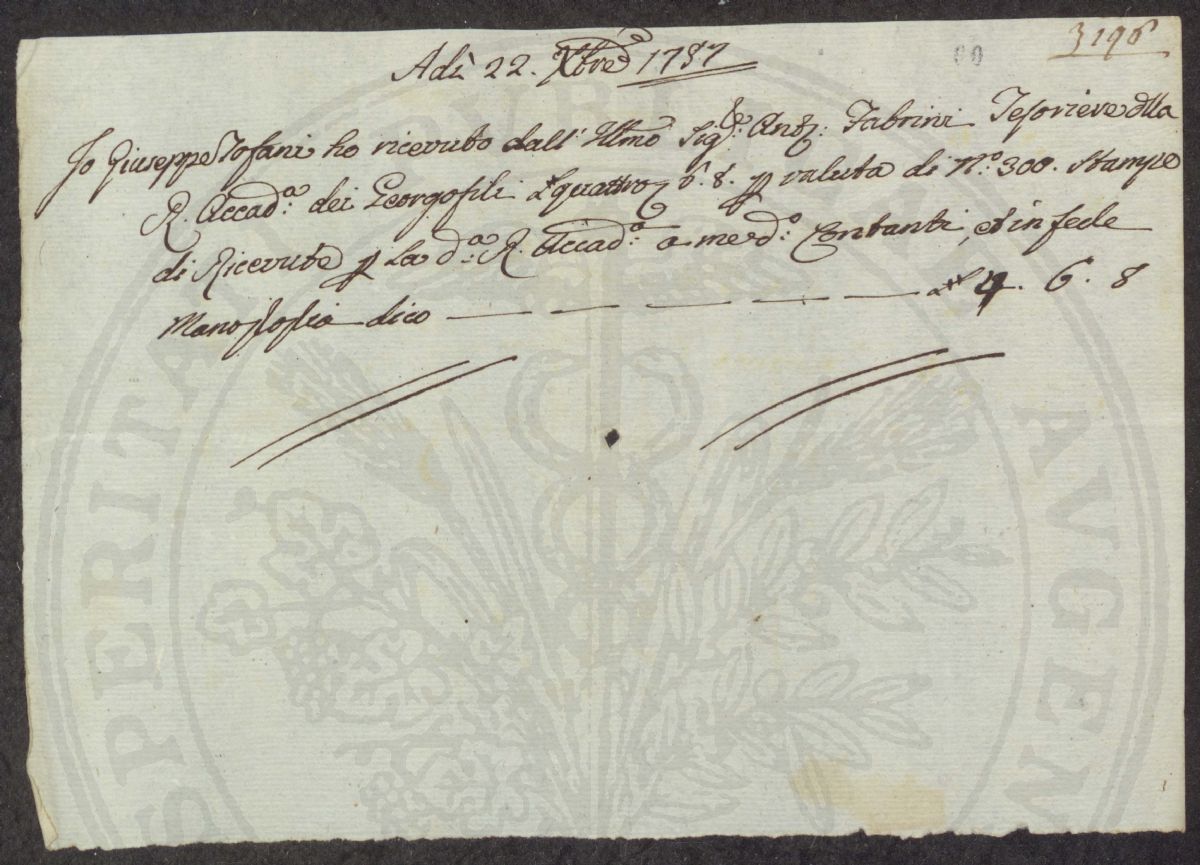 3196
60
Adì 22. Xbre 1787
Io Giuseppe Tofani ho ricevuto dall' Illmo Sigre: Anto: Fabrini Tesoriere della
R. Accada: dei Georgofili £ quattro 6. 8. p valuta di N.o 300. Stampe
di Ricevute p La da: R. Accada: a me do: Contanti, et in fede
Mano propria dico — — — — — — £ 4. 6. 8
PROSPERITATI PUBLICAE AUGEN